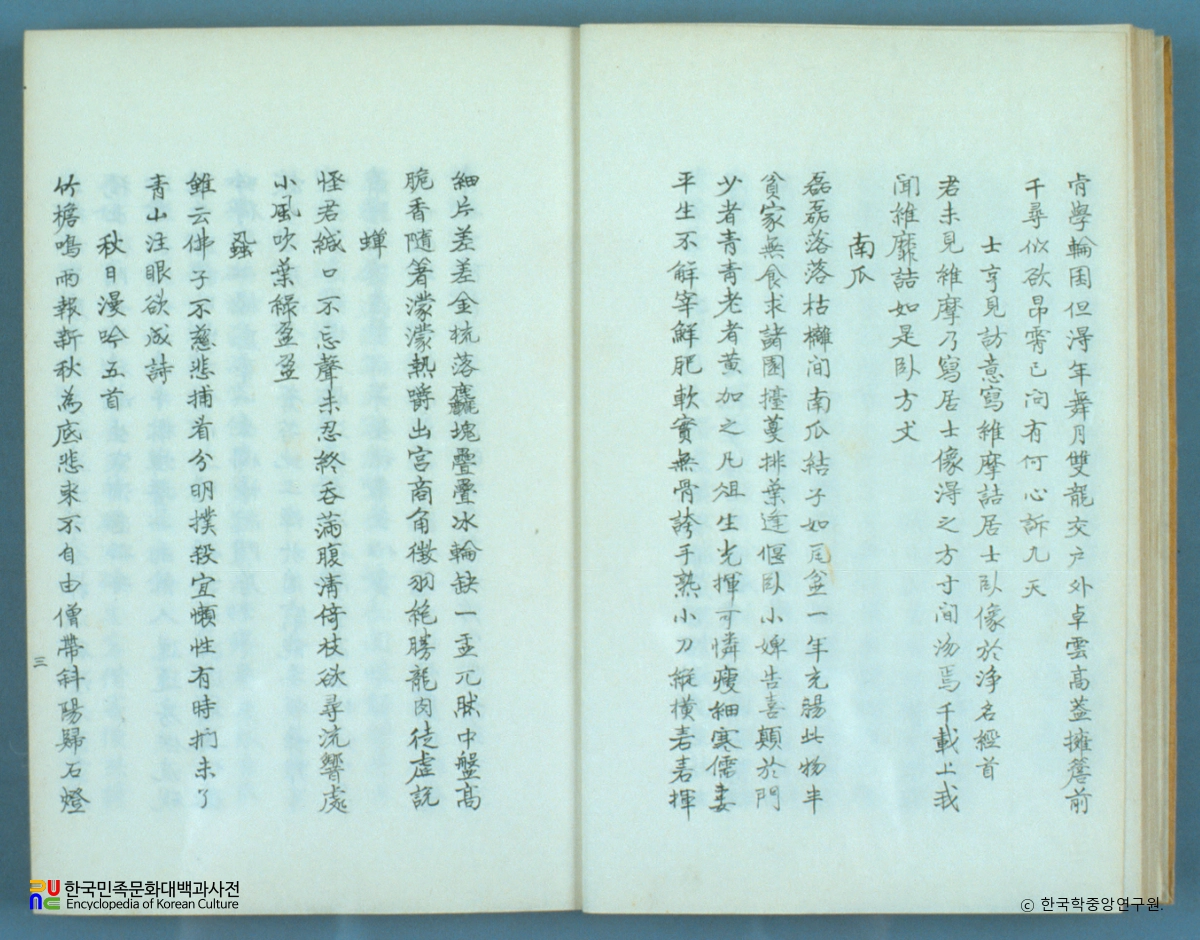 肯學輪囷但淂年舞月雙龍交户外卓雲高盖擁簷前
千尋似欲昂霄已问有何心訴九天
士亨見訪意寫維摩詰居士卧像於净名經首
君未見維摩乃寫居士像淂之方寸间汤焉千載上我
聞維靡詰如是卧方丈
南瓜
磊磊落落枯籬间南瓜结子如瓦盆一年充膓此物半
貧家無食求諸園擡蔓排葉逢偃卧小婢告喜顛於門
少者青青老者黄加之几俎生光揮可憐瘦細寒儒妻
平生不解宰鮮肥軟實無骨誇手熟小刀縱横砉砉揮
細片差差金梳落麤塊疊疊冰輪缺一盂兀然中盤高
脆香随箸濛濛熱嚼出宫商角徵羽絶勝龍肉徒虚説
蟬
怪君緘口不忘聲未忍終吞满腹清倚杖欲尋流響處
小風吹葉綠盈盈
蝨
雖云佛子不慈悲捕着分明撲殺宜懶性有時捫未了
青山注眼欲成詩
秋日漫吟五首
竹檐鳴雨報新秋為底悲来不自由僧帶斜陽歸石燈
三
한국민족문화대백과사전
Encyclopedia of Korean Culture
© 한국학중앙연구원.